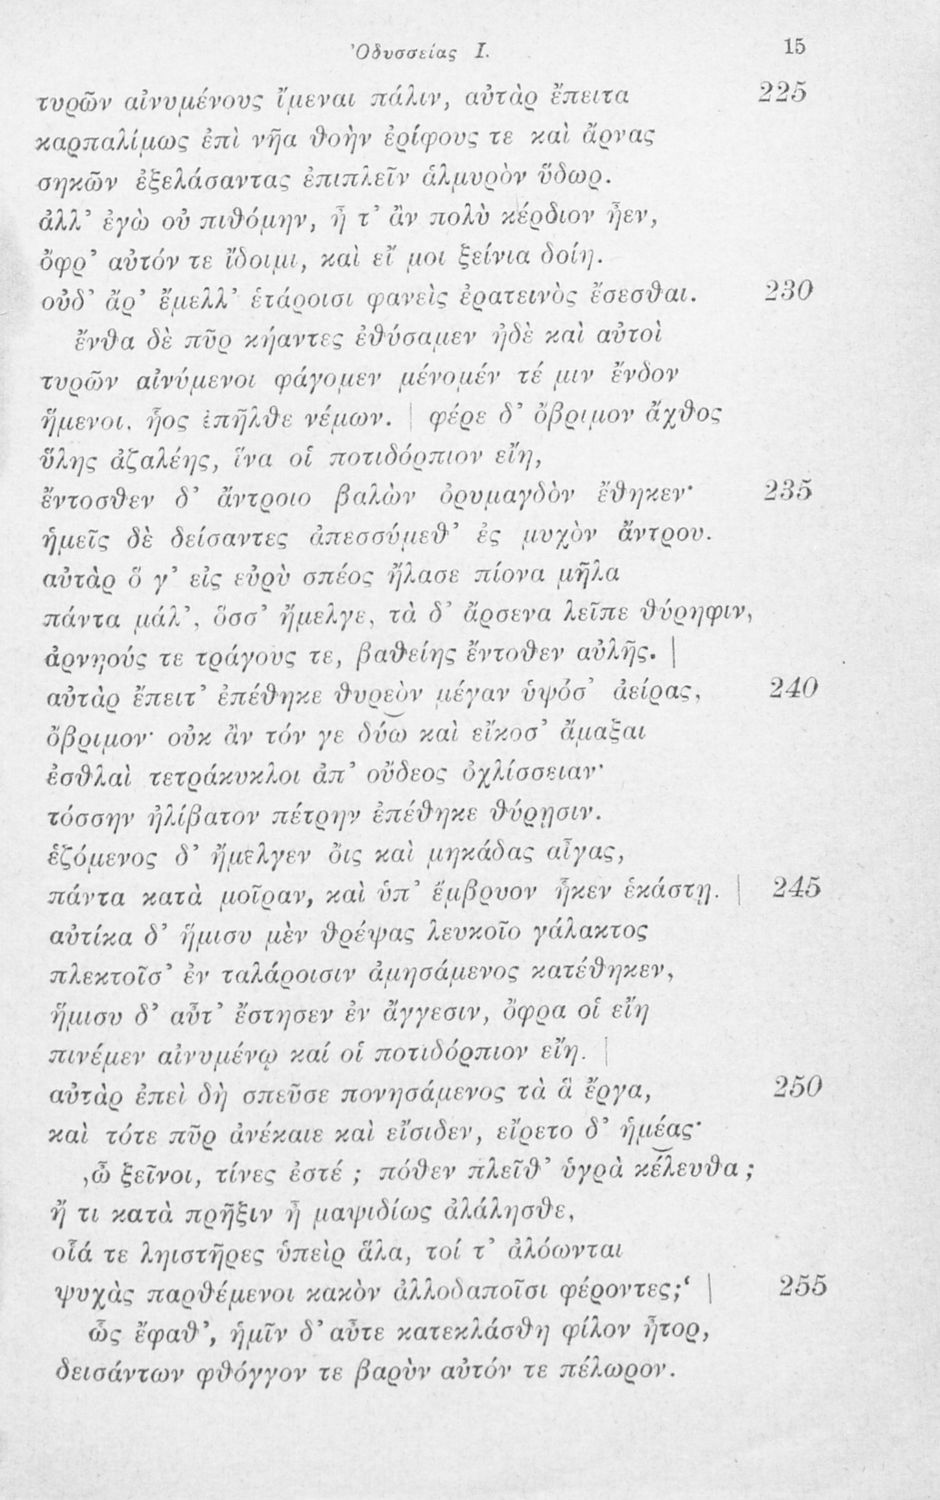 Ὀδυσσείας Ι. 15
τυρῶν αἰνυμένους ἴμεναι πάλιν, αὐτὰρ ἔπειτα 225
καρπαλίμως ἐπὶ νῆα θοὴν ἐρίφους τε καὶ ἄρνας
σηκῶν ἐξελάσαντας ἐπιπλεῖν ἁλμυρὸν ὕδωρ.
ἀλλ’ ἐγὼ οὐ πιθόμην, ἦ τ’ ἂν πολὺ κέρδιον ἦεν,
ὄφρ’ αὐτόν τε ἴδοιμι, καὶ εἴ μοι ξείνια δοίη.
οὐδ’ ἄρ’ ἔμελλ’ ἑτάροισι φανεὶς ἐρατεινὸς ἔσεσθαι. 230
ἔνθα δὲ πῦρ κήαντες ἐθύσαμεν ἠδὲ καὶ αὐτοὶ
τυρῶν αἰνύμενοι φάγομεν μένομέν τέ μιν ἔνδον
ἥμενοι, ἧος ἐπῆλθε νέμων. | φέρε δ’ ὄβριμον ἄχθος
ὕλης ἀζαλέης, ἵνα οἱ ποτιδόρπιον εἴη,
ἔντοσθεν δ’ ἄντροιο βαλὼν ὀρυμαγδὸν ἔθηκεν· 235
ἡμεῖς δὲ δείσαντες ἀπεσσύμεθ’ ἐς μυχὸν ἄντρου.
αὐτὰρ ὅ γ’ εἰς εὐρὺ σπέος ἤλασε πίονα μῆλα
πάντα μάλ’, ὅσσ’ ἤμελγε, τὰ δ’ ἄρσενα λεῖπε θύρηφιν,
ἀρνηούς τε τράγους τε, βαθείης ἔντοθεν αὐλῆς. |
αὐτὰρ ἔπειτ’ ἐπέθηκε θυρεὸν μέγαν ὑψόσ’ ἀείρας, 240
ὄβριμον· οὐκ ἂν τόν γε δύω καὶ εἴκοσ’ ἄμαξαι
ἐσθλαὶ τετράκυκλοι ἀπ’ οὔδεος ὀχλίσσειαν·
τόσσην ἠλίβατον πέτρην ἐπέθηκε θύρῃσιν.
ἑζόμενος δ’ ἤμελγεν ὄις καὶ μηκάδας αἶγας,
πάντα κατὰ μοῖραν, καὶ ὑπ’ ἔμβρυον ἧκεν ἑκάστῃ. | 245
αὐτίκα δ’ ἥμισυ μὲν θρέψας λευκοῖο γάλακτος
πλεκτοῖσ’ ἐν ταλάροισιν ἀμησάμενος κατέθηκεν,
ἥμισυ δ’ αὖτ’ ἔστησεν ἐν ἄγγεσιν, ὄφρα οἱ εἴη
πινέμεν αἰνυμένῳ καί οἱ ποτιδόρπιον εἴη. |
αὐτὰρ ἐπεὶ δὴ σπεῦσε πονησάμενος τὰ ἃ ἔργα, 250
καὶ τότε πῦρ ἀνέκαιε καὶ εἴσιδεν, εἴρετο δ’ ἡμέας·
‚ὦ ξεῖνοι, τίνες ἐστέ; πόθεν πλεῖθ’ ὑγρὰ κέλευθα;
ἤ τι κατὰ πρῆξιν ἦ μαψιδίως ἀλάλησθε,
οἷά τε ληιστῆρες ὑπεὶρ ἅλα, τοί τ’ ἀλόωνται
ψυχὰς παρθέμενοι κακὸν ἀλλοδαποῖσι φέροντες;‘ | 255
ὣς ἔφαθ’, ἡμῖν δ’ αὖτε κατεκλάσθη φίλον ἦτορ,
δεισάντων φθόγγον τε βαρὺν αὐτόν τε πέλωρον.